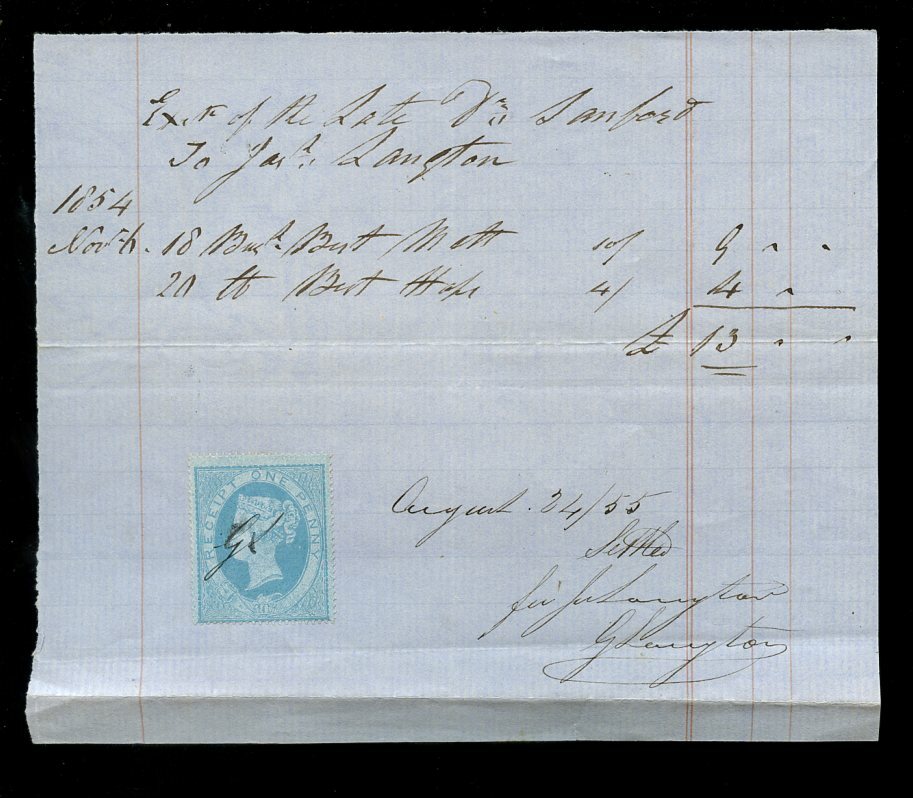 Exrs of the Late Dr. Sanford
To Josh. Langton
1854
Novr 6. 18 Bush. Best Malt 10/ 9 " "
20 lb Best Hops 4/ 4 "
£ 13 " "
RECEIPT ONE PENNY
GL
August 24/55
Settled
for Js Langton
G Langton